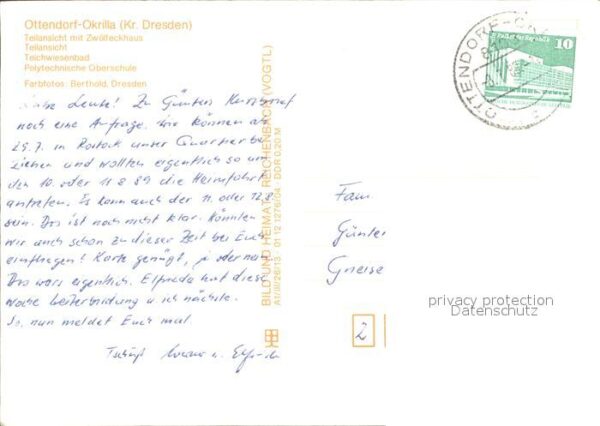 Ottendorf-Okrilla (Kr. Dresden)
Teilansicht mit Zwölfeckhaus
Teilansicht
Teichwiesenbad
Polytechnische Oberschule
Farbfotos: Berthold, Dresden
Liebe Leute! Zu Günters
noch eine Anfrage. Wir können ab
29.7. in Rostock unser Quartier be-
ziehen und wollten eigentlich so um
den 10. oder 11.8.89 die Heimfahrt
antreten. Es kann auch der 11. oder 12.8.
sein. Das ist noch nicht klar. Könnten
wir auch schon zu dieser Zeit bei Euch
einfliegen? Karte genügt, ja oder nein
Das wars eigentlich. Elfriede hat diese
Woche Weiterbildung u. ich nächste.
So, nun meldet Euch mal
Tschüß u.
BILD UND HEIMAT REICHENBACH (VOGTL)
A1/III/26/13 01 12 1276/04 DDR 0,20 M
OTTENDORF-OK
10
Fam.
Günter
Gneise
2
privacy protection
Datenschutz